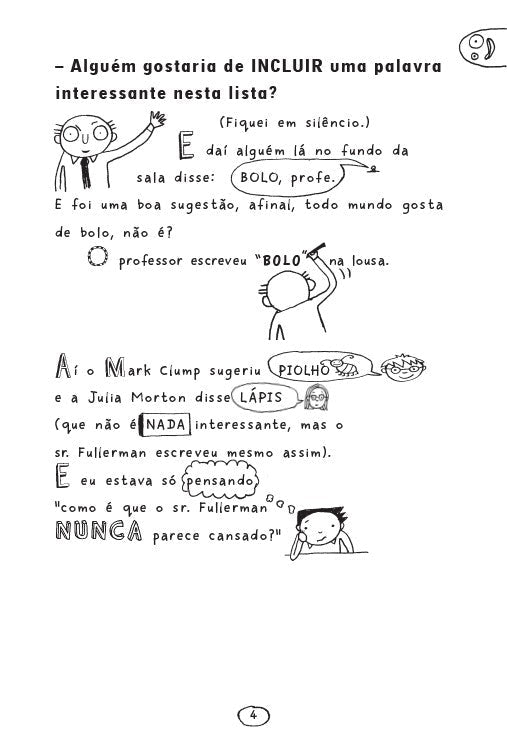 – Alguém gostaria de INCLUIR uma palavra
interessante nesta lista?
(Fiquei em silêncio.)
E daí alguém lá no fundo da
sala disse: BOLO, profe.
E foi uma boa sugestão, afinal, todo mundo gosta
de bolo, não é?
O professor escreveu "BOLO" na lousa.
Aí o Mark Clump sugeriu PIOLHO
e a Julia Morton disse LÁPIS
(que não é NADA interessante, mas o
sr. Fullerman escreveu mesmo assim).
E eu estava só pensando
"como é que o sr. Fullerman
NUNCA parece cansado?"
4